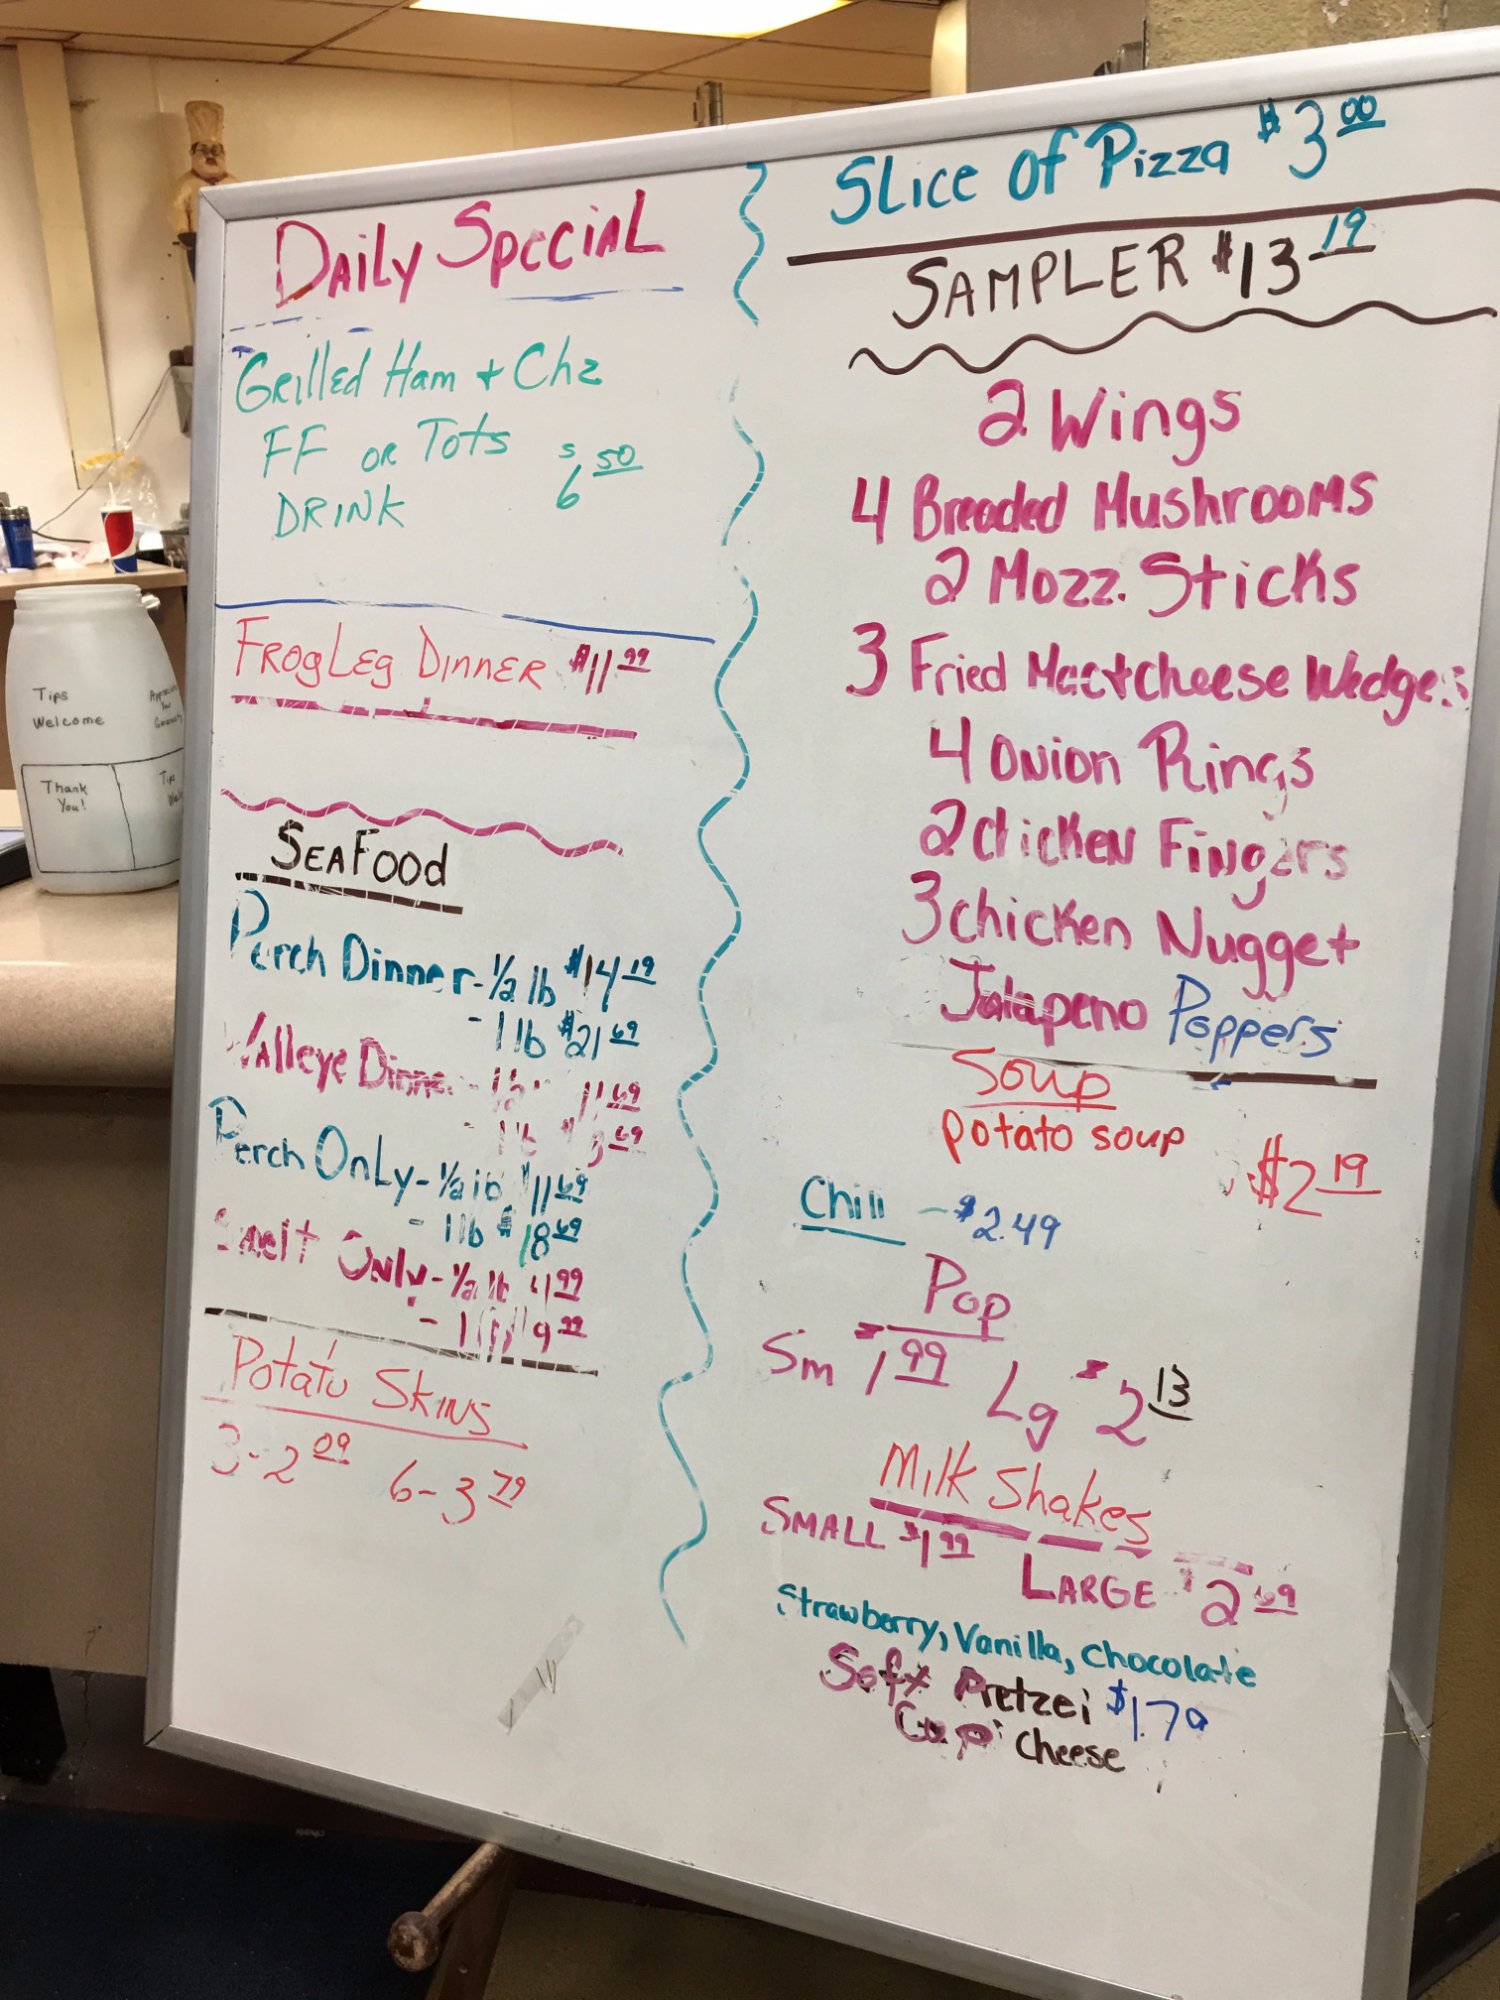 Daily Special
Grilled Ham + Chz
FF or Tots
Drink $6.50
Frog Leg Dinner $11.99
SeaFood
Perch Dinner - 1/2 lb $14.19
- 1 lb $21.69
Walleye Dinner - 11.69
- 1 lb $ .69
Perch Only - 1/2 lb $11.69
- 1 lb $18.69
Smelt Only - 1/2 lb 4.99
- 1 9.99
Potato Skins
3 - 2.09 6 - 3.79
Slice of Pizza $3.00
Sampler $13.19
2 Wings
4 Breaded Mushrooms
2 Mozz. Sticks
3 Fried Mac + Cheese Wedges
4 Onion Rings
2 Chicken Fingers
3 Chicken Nugget
Jalapeno Poppers
Soup
Potato soup $2.19
Chili - $2.49
Pop
Sm 1.99 Lg $2.13
Milk Shakes
Small $1.99
Large $2.69
Strawberry, Vanilla, Chocolate
Soft Pretzel $1.79
Cup Cheese
Tips
Welcome
Thank
You!